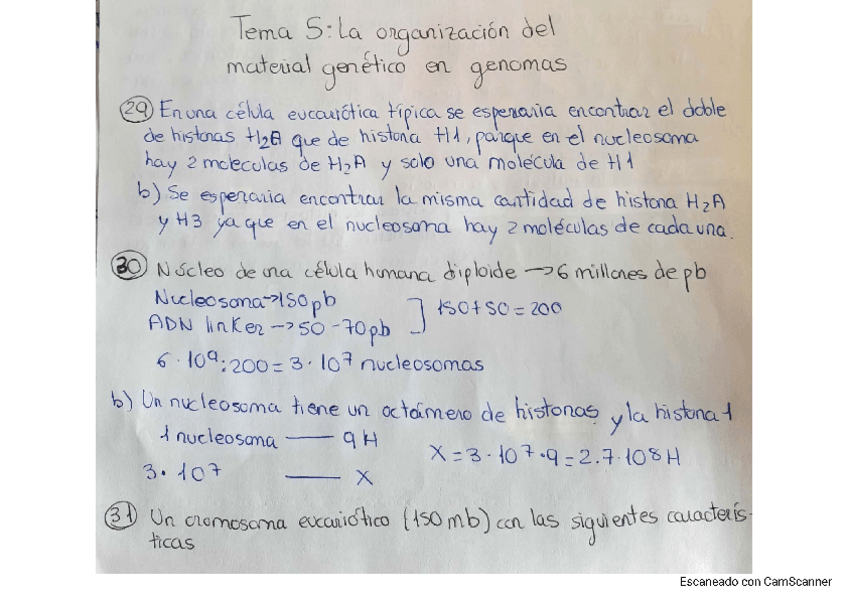 Tema 5: La organización del
material genético en genomas
29 En una célula eucariótica típica se esperaria encontrar el doble
de histonas H2A que de histona H1, porque en el nucleosoma
hay 2 moleculas de H2A y solo una molécula de H1
b) Se esperaria encontrar la misma cantidad de histona H2A
y H3 ya que en el nucleosoma hay 2 moléculas de cada una.
30 Núcleo de una célula humana diploide → 6 millones de pb
Nucleosoma → 150 pb
ADN linker → 50 - 70 pb ] 150 + 50 = 200
6 · 10^9 : 200 = 3 · 10^7 nucleosomas
b) Un nucleosoma tiene un octámero de histonas y la histona 1
1 nucleosoma — 9 H
3 · 10^7 — X X = 3 · 10^7 · 9 = 2.7 · 10^8 H
31 Un cromosoma eucariótico (150 mb) con las siguientes caracterís-
ticas
Escaneado con CamScanner